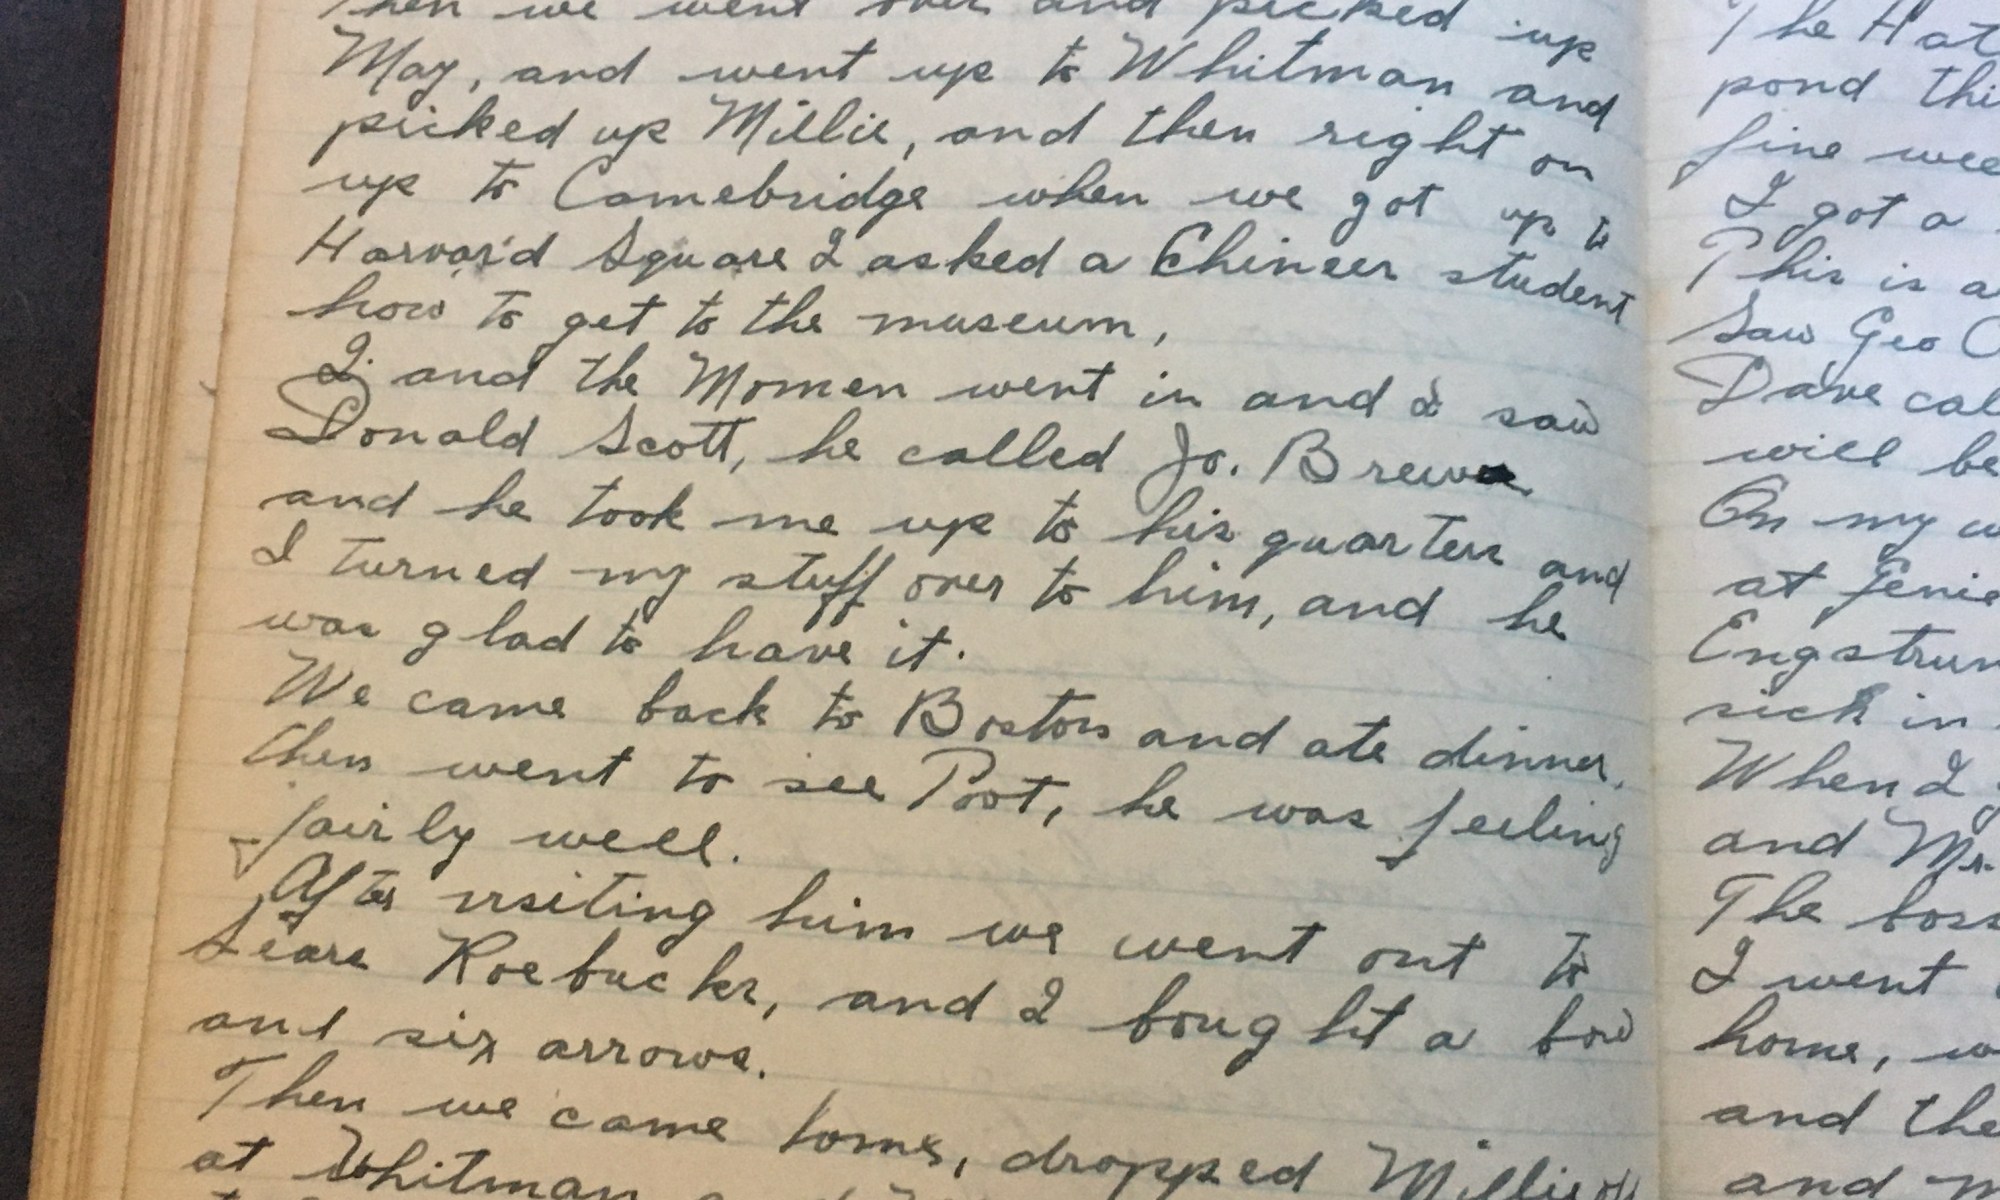 Then we went over and picked up
May, and went up to Whitman and
picked up Millie, and then right on
up to Camebridge when we got up to
Harvard Square I asked a Chineer student
how to get to the museum,
I and the Momen went in and I saw
Donald Scott, he called Jo. Brew
and he took me up to his quarters and
I turned my stuff over to him, and he
was glad to have it.
We came back to Boston and ate dinner,
then went to see Poot, he was feeling
fairly well.
After visiting him we went out to
Sears Roebucks, and I bought a bow
and six arrows.
Then we came home, dropped Millie off
at Whitman
The Hat
pond thi
fine wee
I got a
This is a
Saw Geo C
Dave cal
will be
On my w
at Jenie
Engstrum
sick in
When I
and Mr.
The boss
I went
home, w
and the
and m